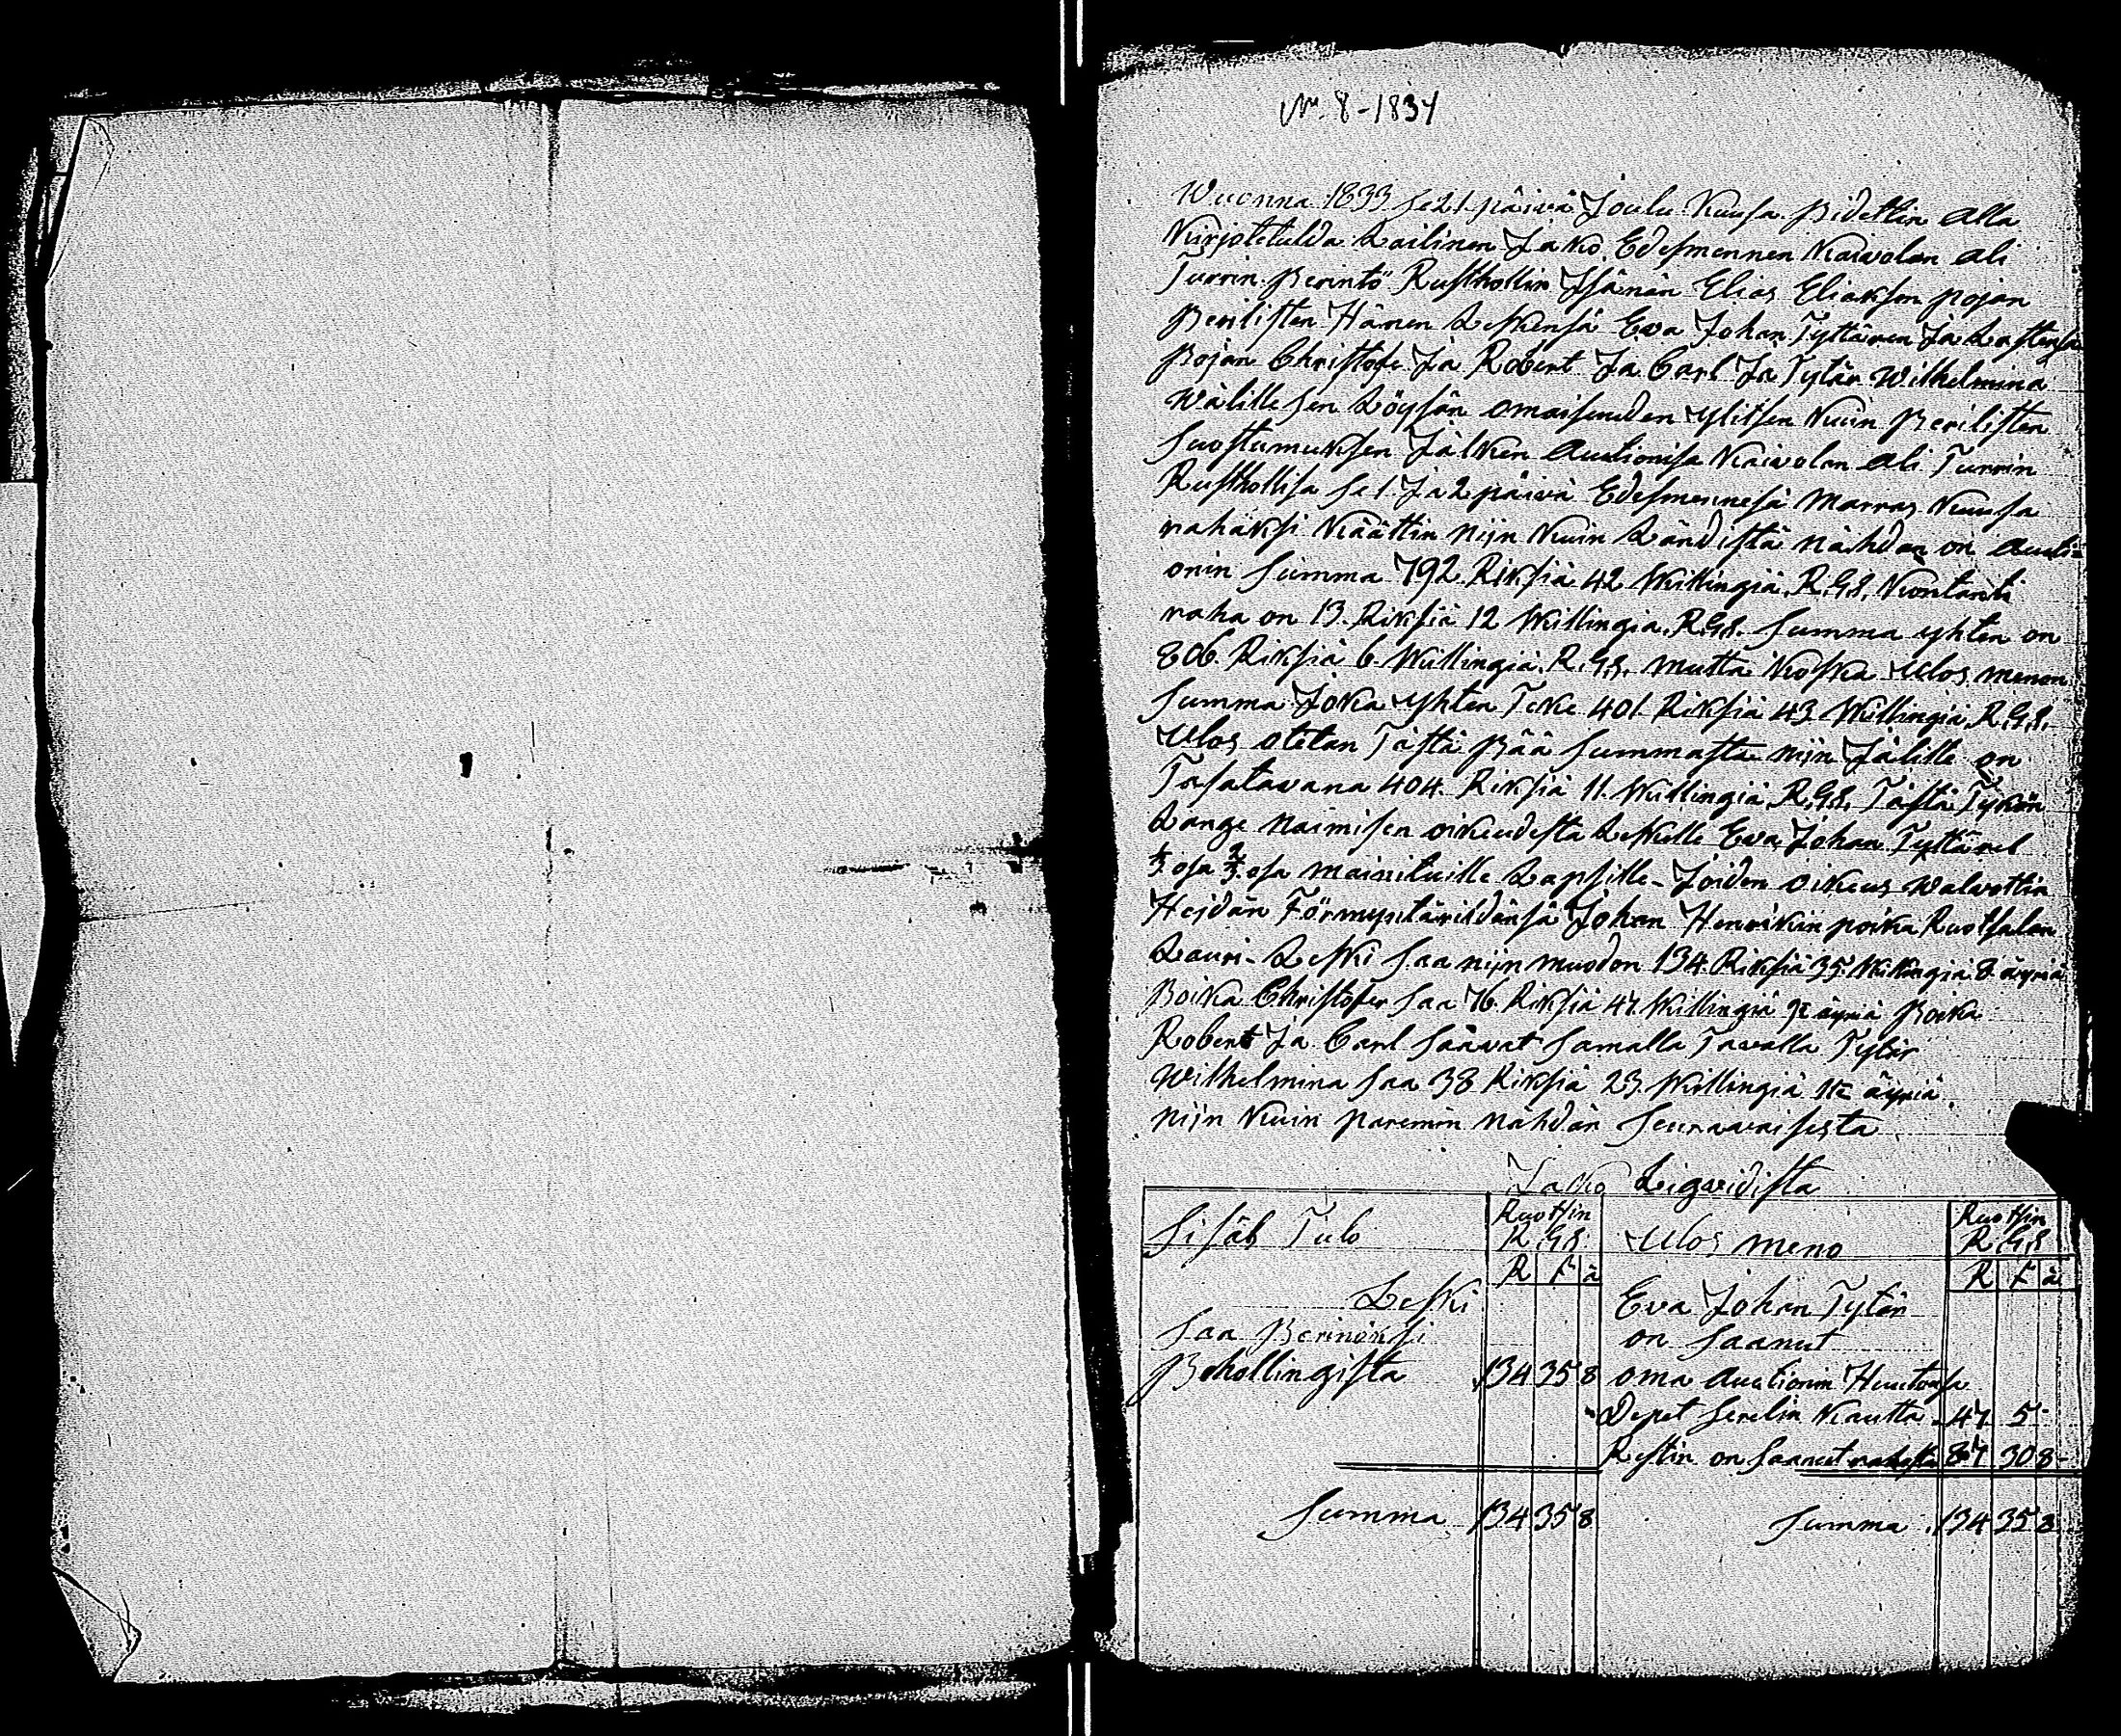 N:o 8-1834
Wuonna 1833 se 21 päivä Joulu Kuusa Pidettin alla
Kirjotetulda Lailinen Jako Edesmennen Kaivolan ali
Turrin Perintö Rusthollin Isänän Elias Eliakson pojan
Perilisten Hänen Leskensä Eva Johan Tyttären Ja Lastensa
Pojan Christofer Ja Robert Ja Carl Ja Tytär Wilhelmina
Wälille sen Löysän omaisuuden ylitsen Kuin Perilisten
suostumuksen Jälken Auctionisa Kaivolan ali Turrin
Rusthollisa se 1 Ja 2 päivä Edesmennesä Marras Kuusa
rahaksi Käättin Nijn Kuin Ländistä nähdan on Aucti-
onin summa 792 Riksiä 42 Killingiä R.G.s. Kontanti
raha on 13. Riksiä 12 Killingia. R.G.s. summa yhten on
806. Riksiä 6. Killingiä. R.G.s. mutta Koska Ulos menon
summa Joka yhten Teke 401. Riksiä 43. Killingiä R.G.s.
Ulos otetan Tästä Pää summasta nijn Jälille on
Tasatavana 404. Riksiä 11. Killingiä R.G.s. Tästä Tykön
Lange Naimisen oikeudesta Leskelle Eva Johan Tyttärel
1/3 osa 2/3 osa mainituille Lapsille - Joiden oikeus walvottin
Hejdän Förmyntärildänsä Johan Henrikin poika Ruotsalan
Lauri - Leski saa nijn muodon 134. Riksiä 35. Killingiä 8. äyriä
Poika Christofer saa 76. Riksiä 47. Killingiä äyriä Poika
Robert Ja Carl Säävat samalla Tavalla Tytär
Wilhelmina saa 38 Riksiä 23 Killingiä äyriä
nijn Kuin paremin nähdän seuraavaisesta
Jako Ligvidista
Sisäl Tulo
Ruotsin
R.G.s.
R ß ä
Ulos meno
Ruotsin
R.G.s
R ß ä
Leski
saa Perinöksi
Behollingista 134 35 8
Eva Johan Tytär
on saanut
oma Auctionin Huutonsa
Depet serelin Kautta 47 5 -
Restin on saanut rahasta 87 30 8 -
Summa 134 35 8
Summa 134 35 8